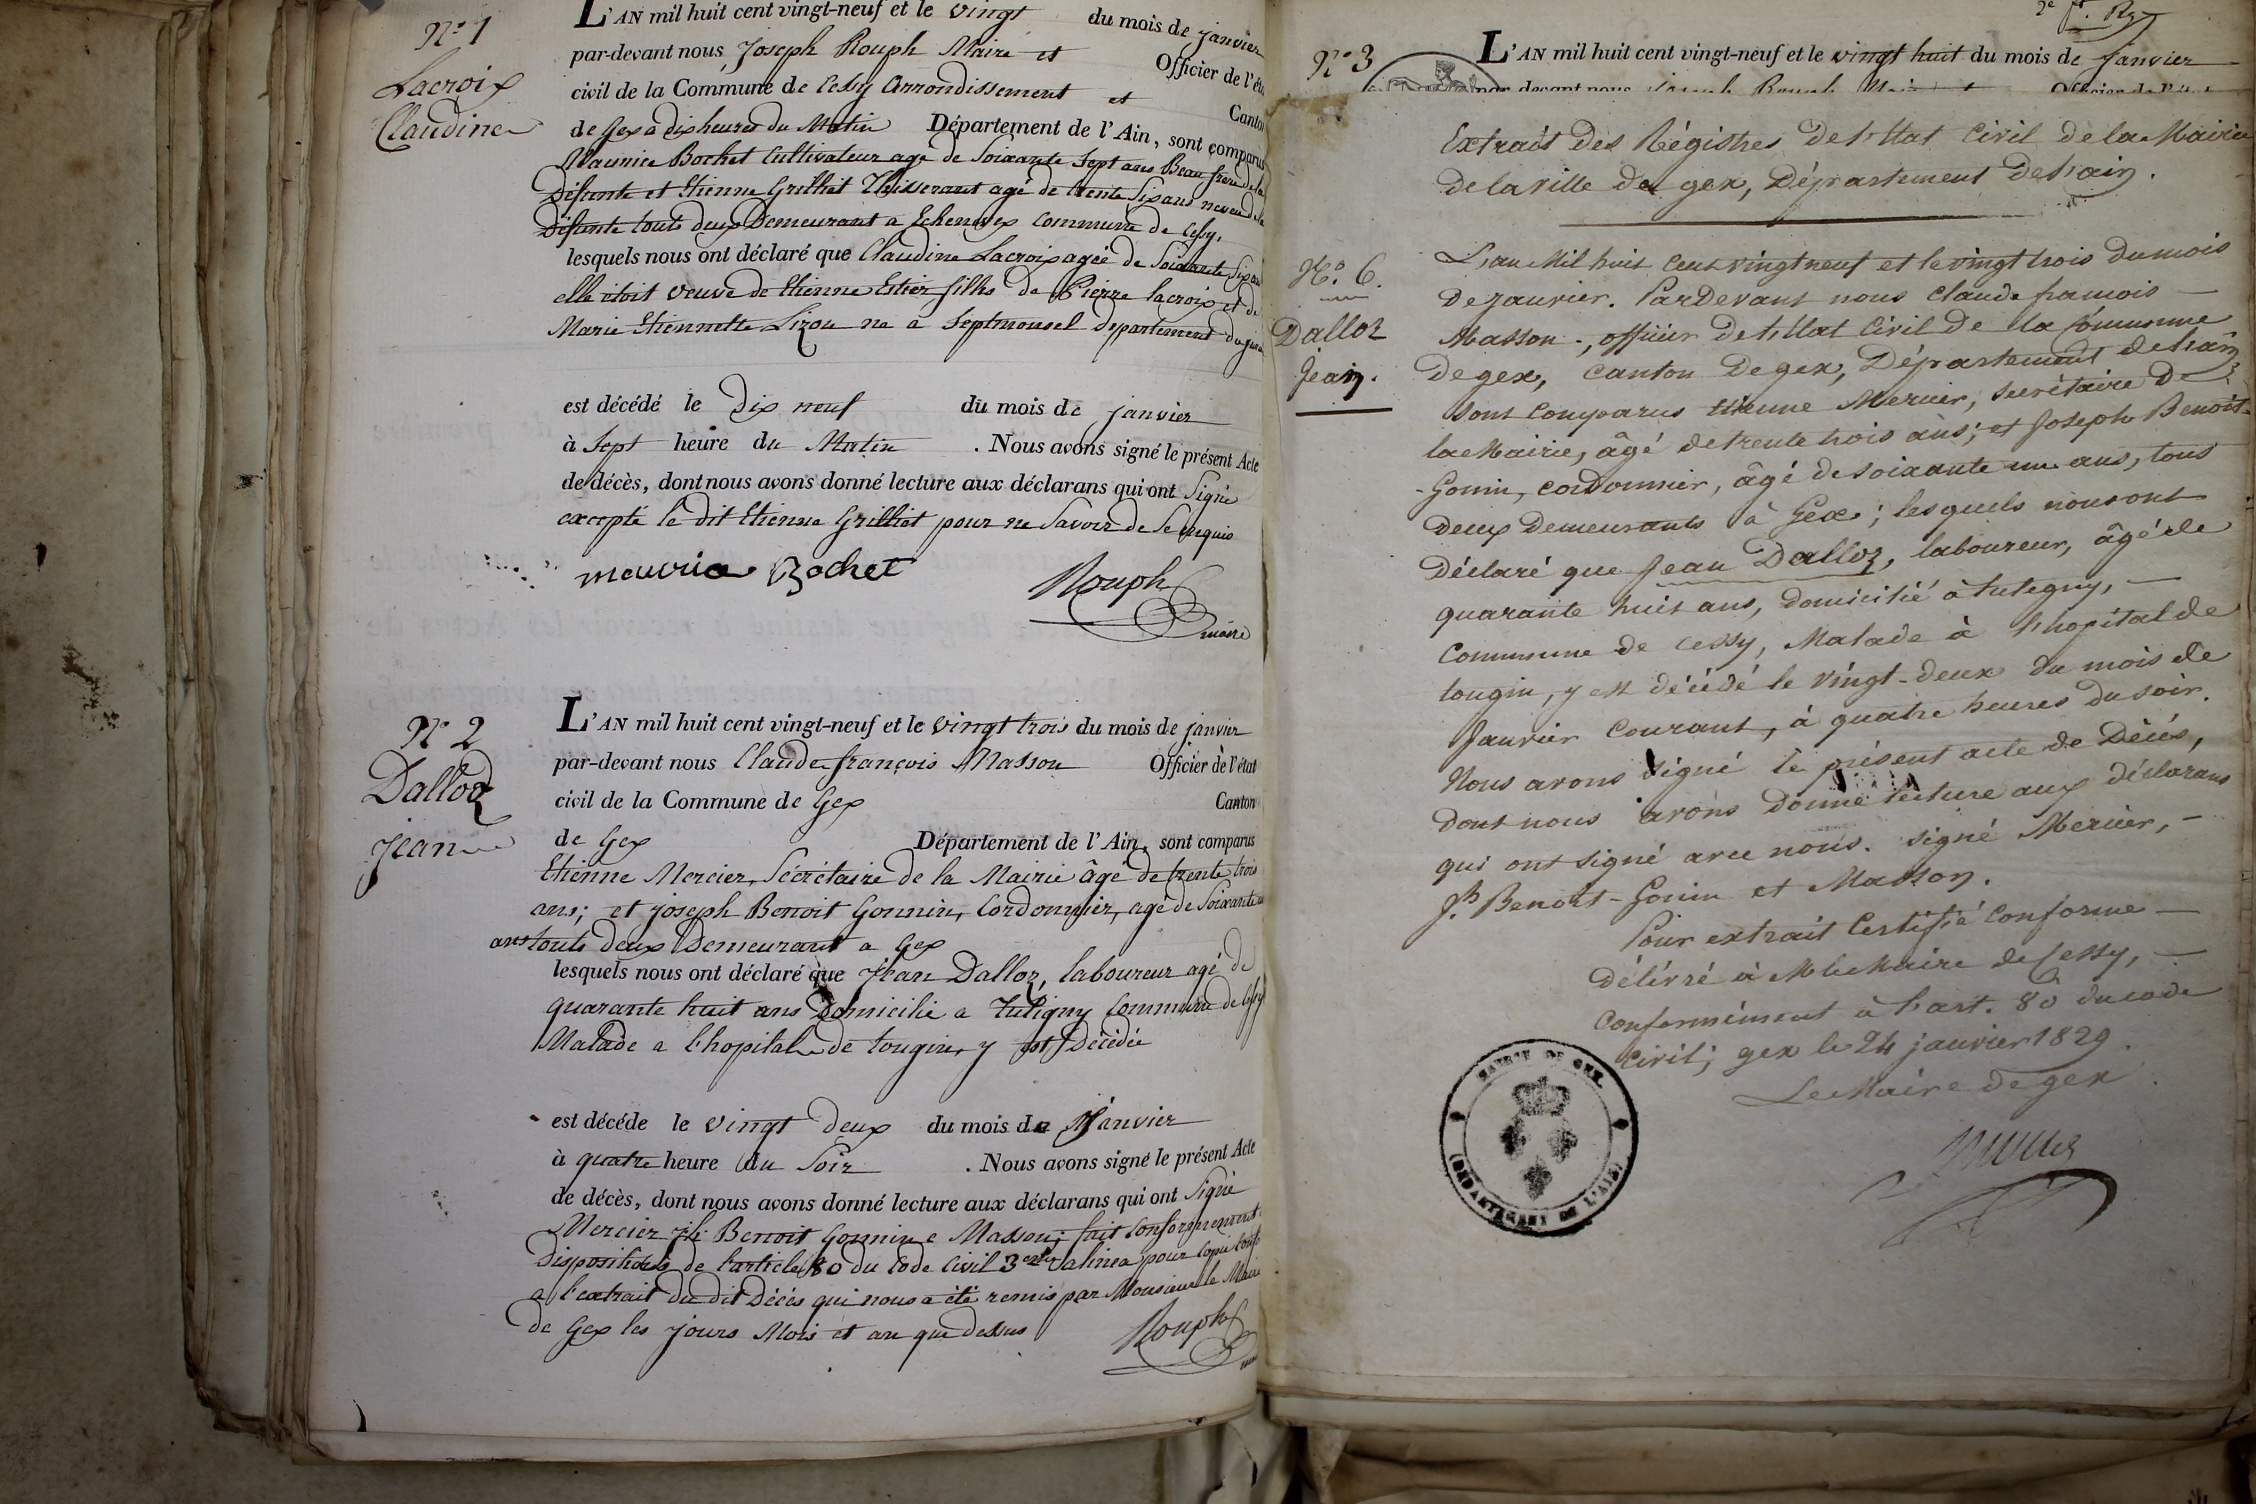 N.o 1
Lacroix
Claudine
L'AN mil huit cent vingt-neuf et le vingt du mois de janvier
par-devant nous Joseph Rouph Maire et Officier de l'état
civil de la Commune de Cessy Arrondissement et Canton
de Gex a dix heures du Matin Département de l'Ain, sont comparus
Maurice Bochet Cultivateur agé de Soixante Sept ans Beau frere de la
Defunte et Etienne Grilliet Thisserant agé de trente Six ans neveu de la
Defunte touts deux Demeurant a Echenevex Commune de Cessy,
lesquels nous ont déclaré que Claudine Lacroix agée de Soixante Six ans
elle etoit veuve de Etienne Estier fille de Pierre lacroix et de
Marie Etiennette Lizon ne a Septmonsel departement du jura
est décédé le Dix neuf du mois de janvier
à Sept heure du Matin . Nous avons signé le présent Acte
de décès, dont nous avons donné lecture aux déclarans qui ont Signé
excepté le dit Etienne Grilliet pour ne Savoir de Ce requis
meurice Bochet
Rouph
maire
N.o 2
Dalloz
Jean
L'AN mil huit cent vingt-neuf et le vingt trois du mois de janvier
par-devant nous Claude françois Masson Officier de l'état
civil de la Commune de Gex Canton
de Gex Département de l'Ain, sont comparus
Etienne Mercier, Secrétaire de la Mairie âgé de trente trois
ans; et joseph Benoit Gonnin, Cordonnier, agé de Soixante un
ans touts deux Demeurant a Gex
lesquels nous ont déclaré que Jean Dalloz, laboureur agé de
quarante huit ans Domicilié a Tutigny Commune de Cessy
Malade a l'hopital de tougin, y est Décédée
est décédé le vingt deux du mois de Janvier
à quatre heure du Soir . Nous avons signé le présent Acte
de décès, dont nous avons donné lecture aux déclarans qui ont Signé
Mercier jh Benoit Gonnin e Masson; fait Conformement
Dispositions de l'article 80 du Code Civil 3eme alinea pour Copie
a l'extrait du dit Décés qui nous a été remis par Monsieur le Maire
de Gex les jours Mois et an que dessus
Rouph
N.o 3
L'AN mil huit cent vingt-neuf et le vingt huit du mois de janvier
par-devant nous joseph Rouph Maire et Officier de l'état
Extrait des Régistres de l'Etat Civil de la Mairie
de la ville de gex, Département de l'ain.
N.o 6.
Dalloz
Jean.
L'an Mil huit Cent vingt neuf et le vingt trois du mois
de janvier. Pardevant nous Claude francois
Masson, officier de l'Etat Civil de la Commune
de gex, Canton de gex, Département de l'ain,
sont Comparus Etienne Mercier, Secrétaire de
la Mairie, âgé de trente trois ans; et Joseph Benoit-
-Gonin, cordonnier, âgé de soixante un ans, tous
deux demeurants à Gex; lesquels nous ont
Déclaré que Jean Dalloz, laboureur, âgé de
quarante huit ans, domicilié à tutegny,
Commune de cessy, Malade à l'hopital de
tougin, y est décédé le vingt-deux du mois de
Janvier Courant, à quatre heures du soir.
Nous avons signé le présent acte de Décés,
dont nous avons donné lecture aux déclarans
qui ont signé avec nous. signé Mercier,
J.h Benoit-Gonin et Masson.
Pour extrait Certifié Conforme
délivré à M. le Maire de Cessy,
Conformément à l'art. 80 du code
Civil; gex le 24 janvier 1829.
Le Maire de gex
MAIRIE DE GEX.
(DÉPARTEMENT DE L'AIN)